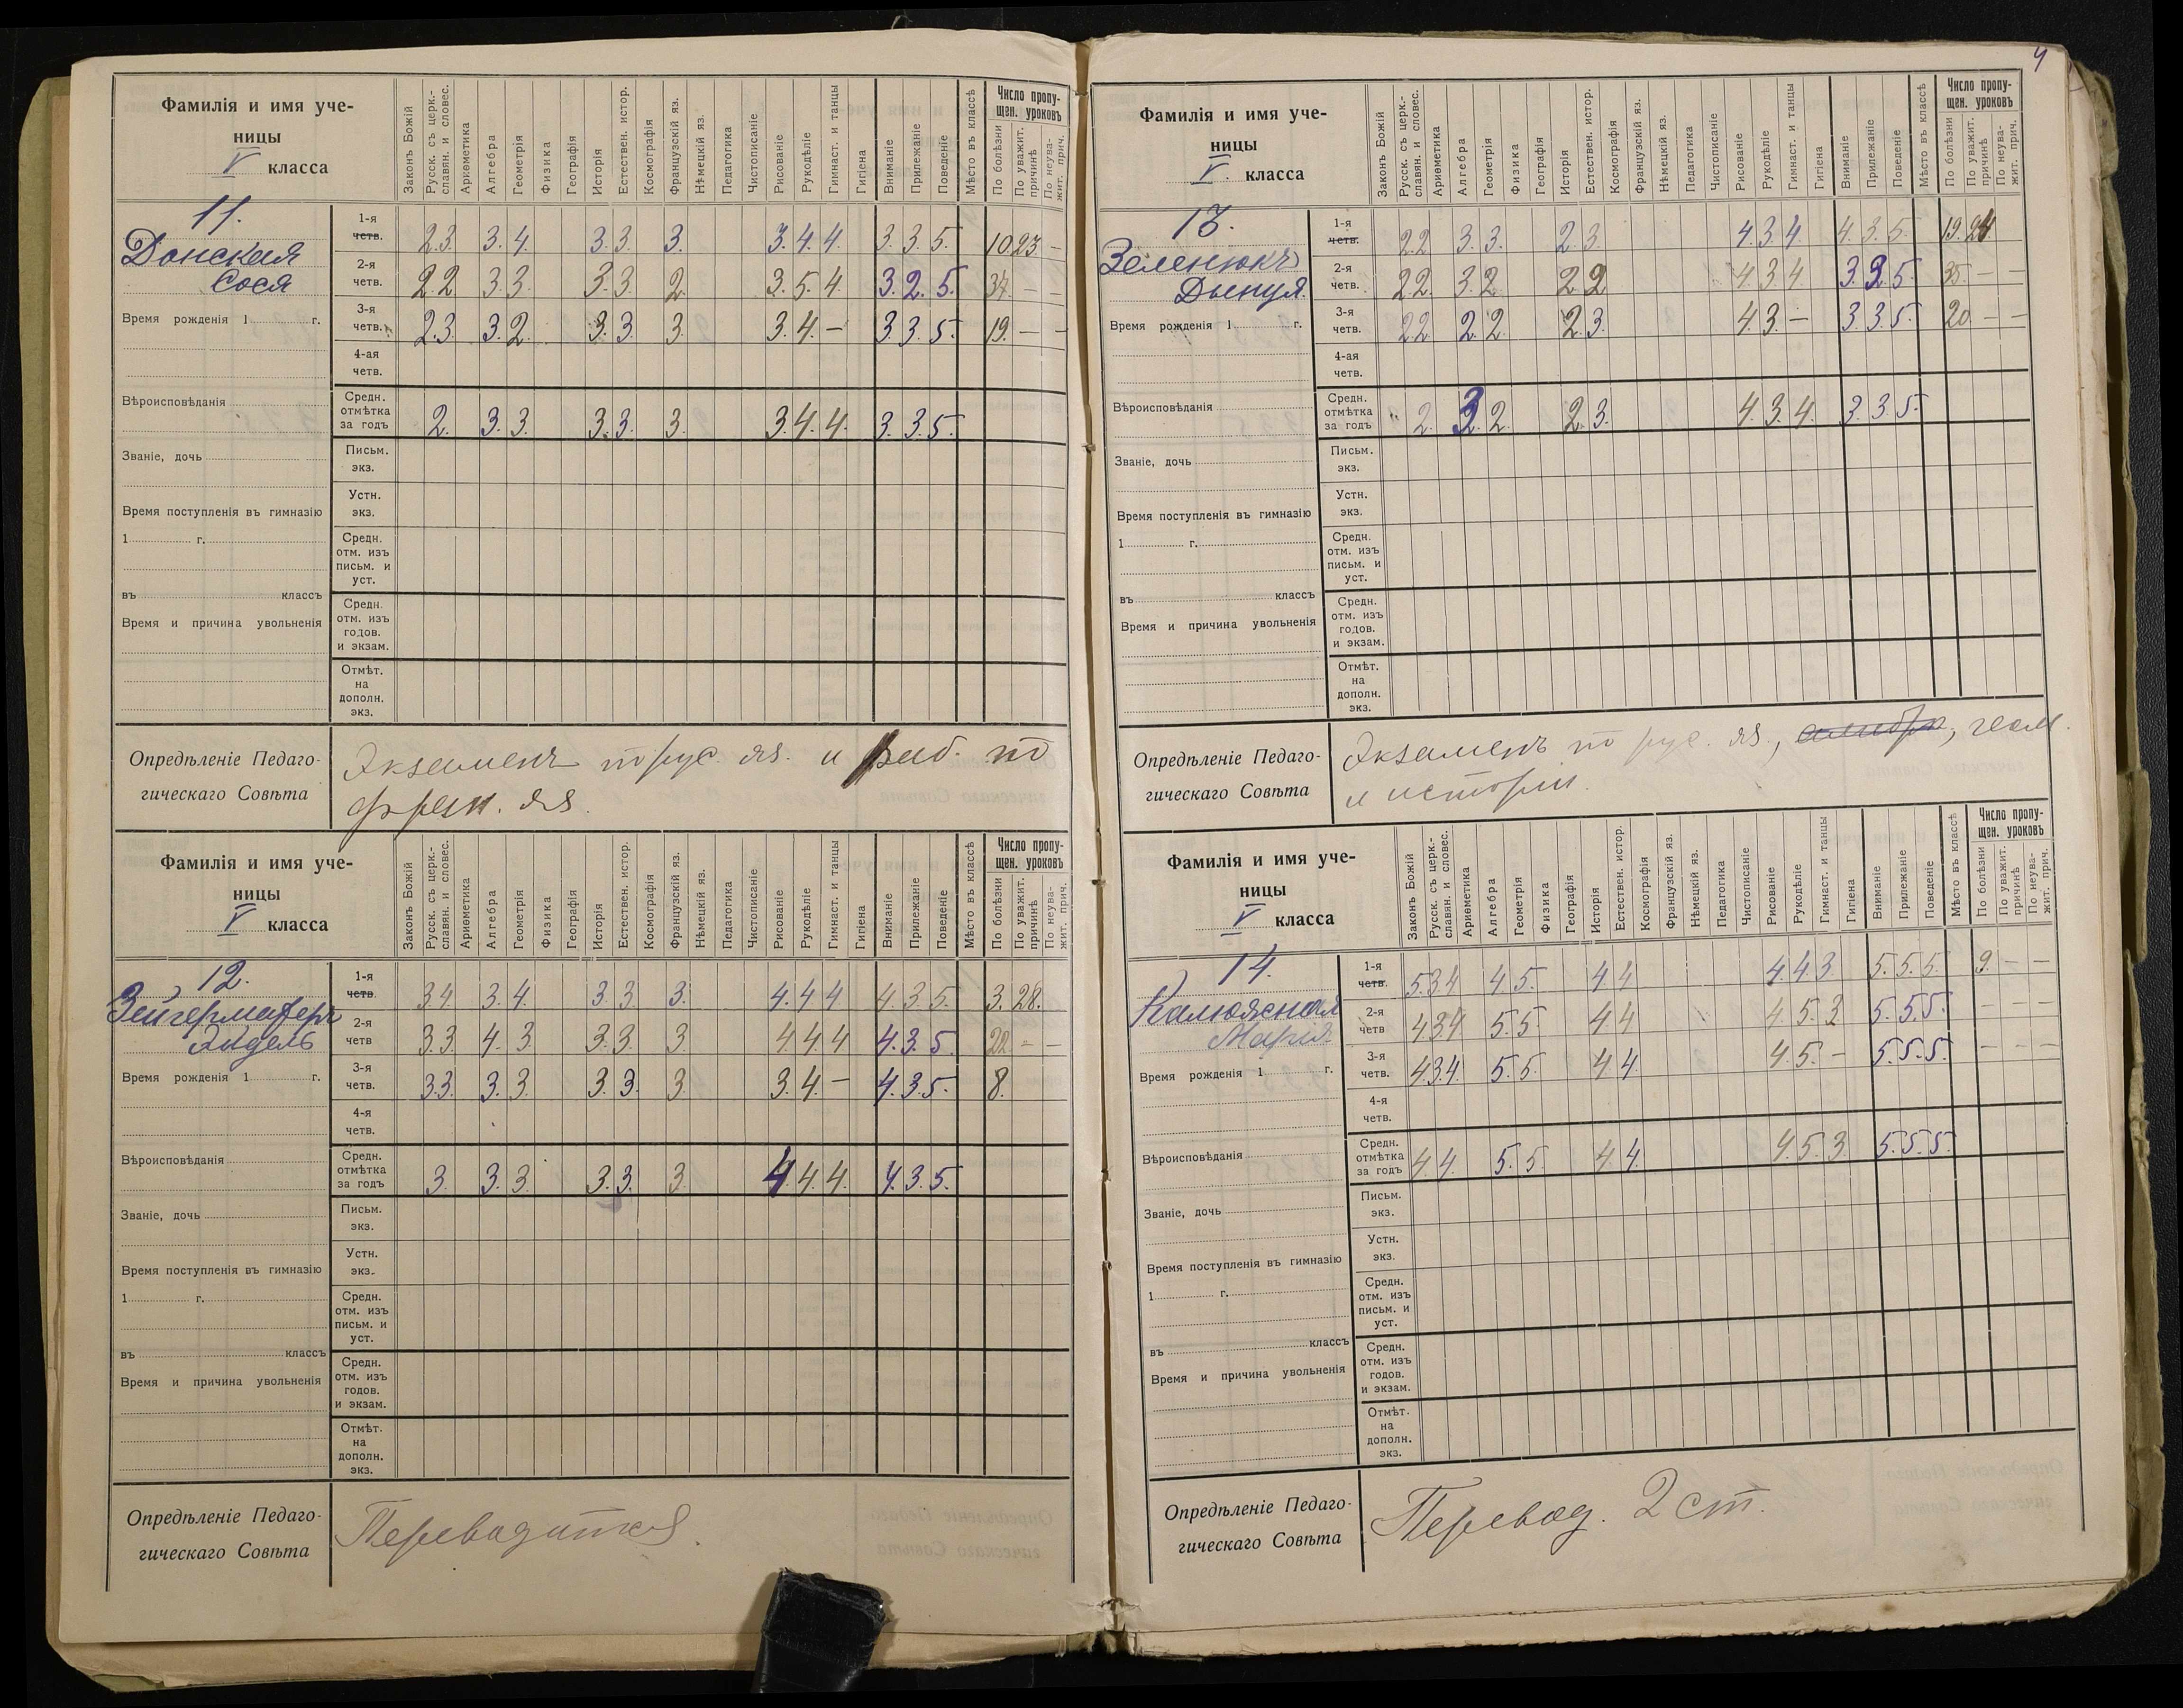 4
Фамилія и имя уче-
ницы
V класса
Законъ Божій
Русск. съ церк.-
славян. и словес.
Ариѳметика
Алгебра
Геометрія
Физика
Географія
Исторія
Естествен. истор.
Космографія
Французскій яз.
Нѣмецкій яз.
Педагогика
Чистописаніе
Рисованіе
Рукодѣліе
Гимнаст. и танцы
Гигіена
Вниманіе
Прилежаніе
Поведеніе
Мѣсто въ классѣ
Число пропу-
щен. уроковъ
По болѣзни
По уважит.
причинѣ
По неува-
жит. прич.
11.
Донская
Сося
1-я четв. 2.3. 3. 4. 3. 3. 3. 3. 4. 4 3. 3. 5. 10 23 –
2-я четв. 2 2 3 3. 3. 3. 2 3. 5. 4. 3. 2. 5. 34. – –
3-я четв. 2.3. 3. 2. 3. 3. 3. 3. 4. – 3. 3. 5. 19. – –
Время рожденія 1 г.
4-ая четв.
Вѣроисповѣданія
Средн. отмѣтка за годъ 2. 3. 3. 3. 3. 3. 3. 4. 4. 3. 3. 5.
Званіе, дочь
Письм. экз.
Устн. экз.
Время поступленія въ гимназію
1 г.
Средн. отм. изъ письм. и уст.
въ классъ
Средн. отм. изъ годов. и экзам.
Время и причина увольненія
Отмѣт. на дополн. экз.
Опредѣленіе Педаго-
гическаго Совѣта
Экзаменъ по рус. яз. и раб. по
фран. яз.
Фамилія и имя уче-
ницы
V класса
Законъ Божій
Русск. съ церк.-
славян. и словес.
Ариѳметика
Алгебра
Геометрія
Физика
Географія
Исторія
Естествен. истор.
Космографія
Французскій яз.
Нѣмецкій яз.
Педагогика
Чистописаніе
Рисованіе
Рукодѣліе
Гимнаст. и танцы
Гигіена
Вниманіе
Прилежаніе
Поведеніе
Мѣсто въ классѣ
Число пропу-
щен. уроковъ
По болѣзни
По уважит.
причинѣ
По неува-
жит. прич.
12.
Зейгермахеръ
1-я четв. 3 4. 3. 4. 3. 3. 3. 4. 4 4 4. 3. 5. 3. 28.
2-я четв 3.3. 4. 3. 3. 3. 3. 4 4. 4 4. 3. 5. 22 – –
3-я четв. 3.3. 3. 3 3. 3. 3 3. 4. – 4. 3. 5. 8.
Время рожденія 1 г.
4-я четв.
Вѣроисповѣданія
Средн. отмѣтка за годъ 3. 3. 3. 3. 3. 3. 4. 4. 4. 4. 3. 5.
Званіе, дочь
Письм. экз.
Устн. экз.
Время поступленія въ гимназію
1 г.
Средн. отм. изъ письм. и уст.
въ классъ
Средн. отм. изъ годов. и экзам.
Время и причина увольненія
Отмѣт. на дополн. экз.
Опредѣленіе Педаго-
гическаго Совѣта
Переводится.
Фамилія и имя уче-
ницы
V. класса
Законъ Божій
Русск. съ церк.-
славян. и словес.
Ариѳметика
Алгебра
Геометрія
Физика
Географія
Исторія
Естествен. истор.
Космографія
Французскій яз.
Нѣмецкій яз.
Педагогика
Чистописаніе
Рисованіе
Рукодѣліе
Гимнаст. и танцы
Гигіена
Вниманіе
Прилежаніе
Поведеніе
Мѣсто въ классѣ
Число пропу-
щен. уроковъ
По болѣзни
По уважит.
причинѣ
По неува-
жит. прич.
13.
Зеленюкъ
1-я четв. 2 2 3. 3. 2. 3. 4. 3 4. 4. 3. 5. 19. 24
2-я четв. 2 2. 3. 2 2 2 4 3 4 3. 2 5. 35 – –
3-я четв. 2 2. 2. 2. 2 3. 4 3. – 3. 3. 5. 20 – –
Время рожденія 1 г.
4-ая четв.
Вѣроисповѣданія
Средн. отмѣтка за годъ 2. 3. 2. 2 3. 4. 3. 4. 3. 3 5.
Званіе, дочь
Письм. экз.
Устн. экз.
Время поступленія въ гимназію
1 г.
Средн. отм. изъ письм. и уст.
въ классъ
Средн. отм. изъ годов. и экзам.
Время и причина увольненія
Отмѣт. на дополн. экз.
Опредѣленіе Педаго-
гическаго Совѣта
Экзаменъ по рус. яз., алгебра, геом.
и исторіи.
Фамилія и имя уче-
ницы
V класса
Законъ Божій
Русск. съ церк.-
славян. и словес.
Ариѳметика
Алгебра
Геометрія
Физика
Географія
Исторія
Естествен. истор.
Космографія
Французскій яз.
Нѣмецкій яз.
Педагогика
Чистописаніе
Рисованіе
Рукодѣліе
Гимнаст. и танцы
Гигіена
Вниманіе
Прилежаніе
Поведеніе
Мѣсто въ классѣ
Число пропу-
щен. уроковъ
По болѣзни
По уважит.
причинѣ
По неува-
жит. прич.
14.
Калюжная
Марія
1-я четв. 5.3 4 4 5. 4 4 4. 4. 3 5. 5. 5. 9. – –
2-я четв 4 3 4 5. 5. 4 4 4. 5. 3 5. 5. 5. – – –
3-я четв. 4.3.4. 5. 5. 4 4. 4. 5. – 5. 5. 5. – – –
Время рожденія 1 г.
4-я четв.
Вѣроисповѣданія
Средн. отмѣтка за годъ 4. 4. 5. 5. 4. 4. 4. 5. 3 5. 5. 5.
Званіе, дочь
Письм. экз.
Устн. экз.
Время поступленія въ гимназію
1 г.
Средн. отм. изъ письм. и уст.
въ классъ
Средн. отм. изъ годов. и экзам.
Время и причина увольненія
Отмѣт. на дополн. экз.
Опредѣленіе Педаго-
гическаго Совѣта
Перевод. 2 ст.